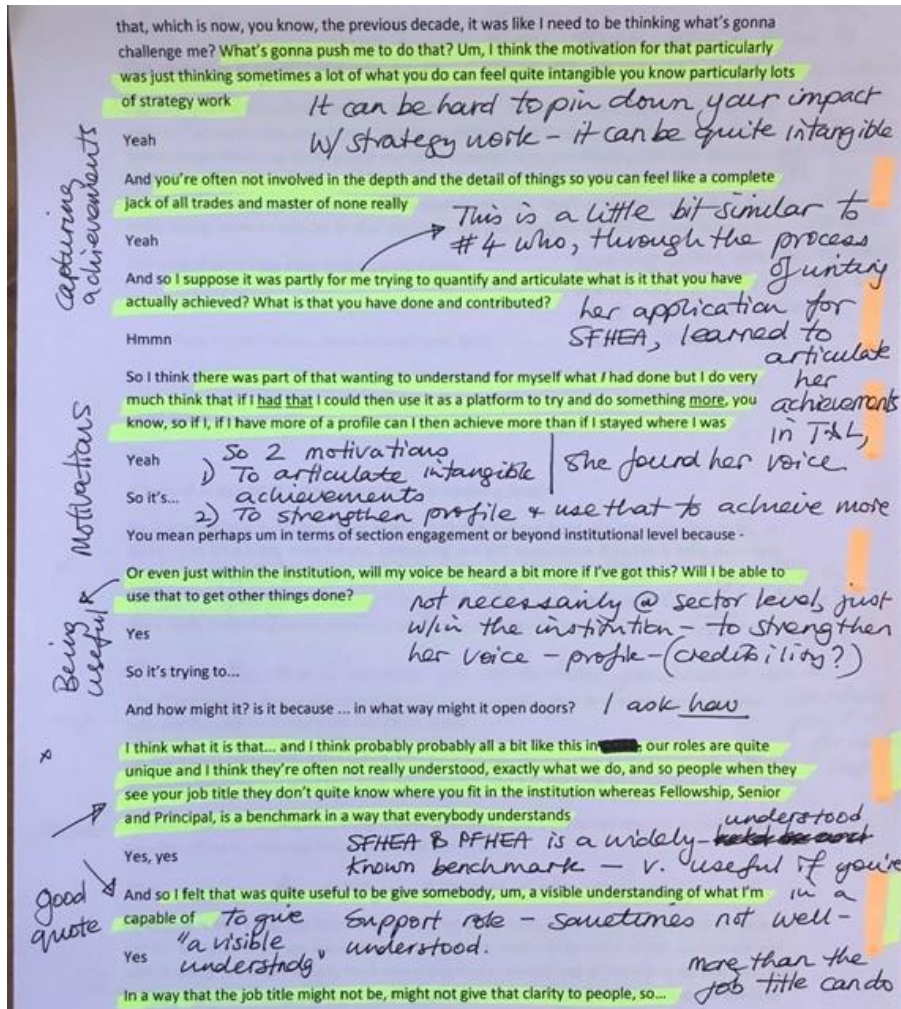 that, which is now, you know, the previous decade, it was like I need to be thinking what's gonna
challenge me? What's gonna push me to do that? Um, I think the motivation for that particularly
was just thinking sometimes a lot of what you do can feel quite intangible you know particularly lots
of strategy work
It can be hard to pin down your impact
w/ strategy work – it can be quite intangible
Yeah
Capturing
achievements
And you're often not involved in the depth and the detail of things so you can feel like a complete
jack of all trades and master of none really
This is a little bit similar to
#4 who, through the process
of writing
her application for
SFHEA, learned to
articulate
her
achievements
in T&L,
she found her voice.
Yeah
And so I suppose it was partly for me trying to quantify and articulate what is it that you have
actually achieved? What is that you have done and contributed?
Hmmn
So I think there was part of that wanting to understand for myself what I had done but I do very
much think that if I had that I could then use it as a platform to try and do something more, you
know, so if I, if I have more of a profile can I then achieve more than if I stayed where I was
Motivations
Yeah
So 2 motivations
1) To articulate intangible
achievements
2) To strengthen profile + use that to achieve more
So it's...
You mean perhaps um in terms of section engagement or beyond institutional level because -
Being
useful
Or even just within the institution, will my voice be heard a bit more if I've got this? Will I be able to
use that to get other things done?
not necessarily @ sector level, just
w/in the institution – to strengthen
her voice – profile – (credibility?)
Yes
So it's trying to...
And how might it? is it because ... in what way might it open doors?
I ask how
I think what it is that... and I think probably probably all a bit like this in our roles are quite
unique and I think they're often not really understood, exactly what we do, and so people when they
see your job title they don't quite know where you fit in the institution whereas Fellowship, Senior
and Principal, is a benchmark in a way that everybody understands
understood
SFHEA & PFHEA is a widely-
known benchmark – v. useful if you're
in a
support role – sometimes not well-
understood.
Yes, yes
good
quote
And so I felt that was quite useful to be give somebody, um, a visible understanding of what I'm
capable of
to give
"a visible
understndg"
Yes
more than the
job title can do
In a way that the job title might not be, might not give that clarity to people, so...